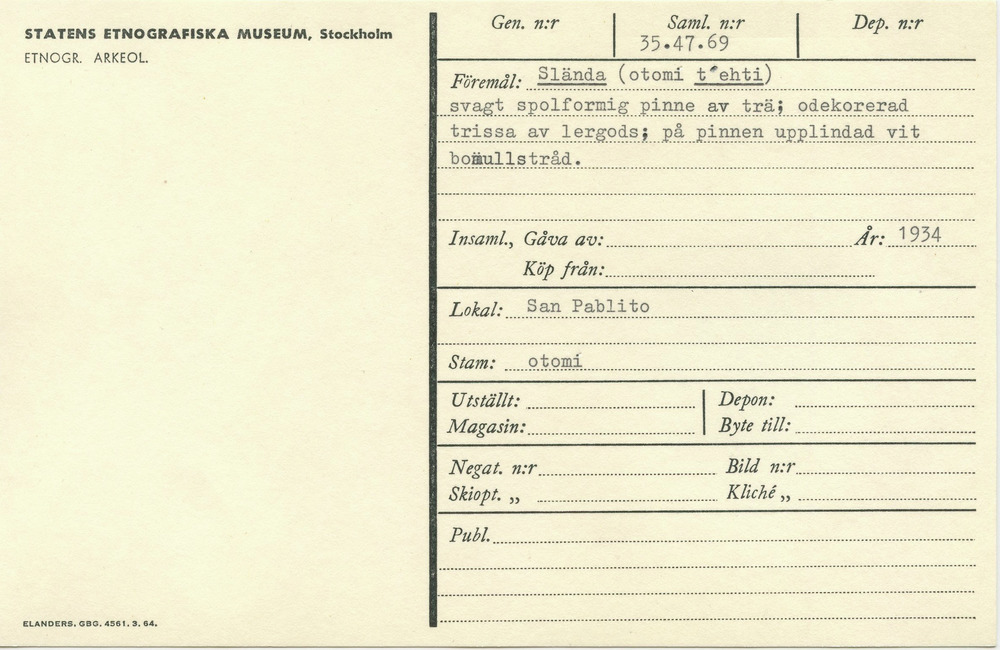 STATENS ETNOGRAFISKA MUSEUM, Stockholm
ETNOGR. ARKEOL.
Gen. n:r Saml. n:r Dep. n:r
35.47.69
Föremål: Slända (otomí t´ehti)
svagt spolformig pinne av trä; odekorerad
trissa av lergods; på pinnen upplindad vit
bomullstråd.
Insaml., Gåva av: År: 1934
Köp från:
Lokal: San Pablito
Stam: otomí
Utställt: Depon:
Magasin: Byte till:
Negat. n:r Bild n:r
Skiopt. „ Kliché „
Publ.
ELANDERS. GBG. 4561. 3. 64.